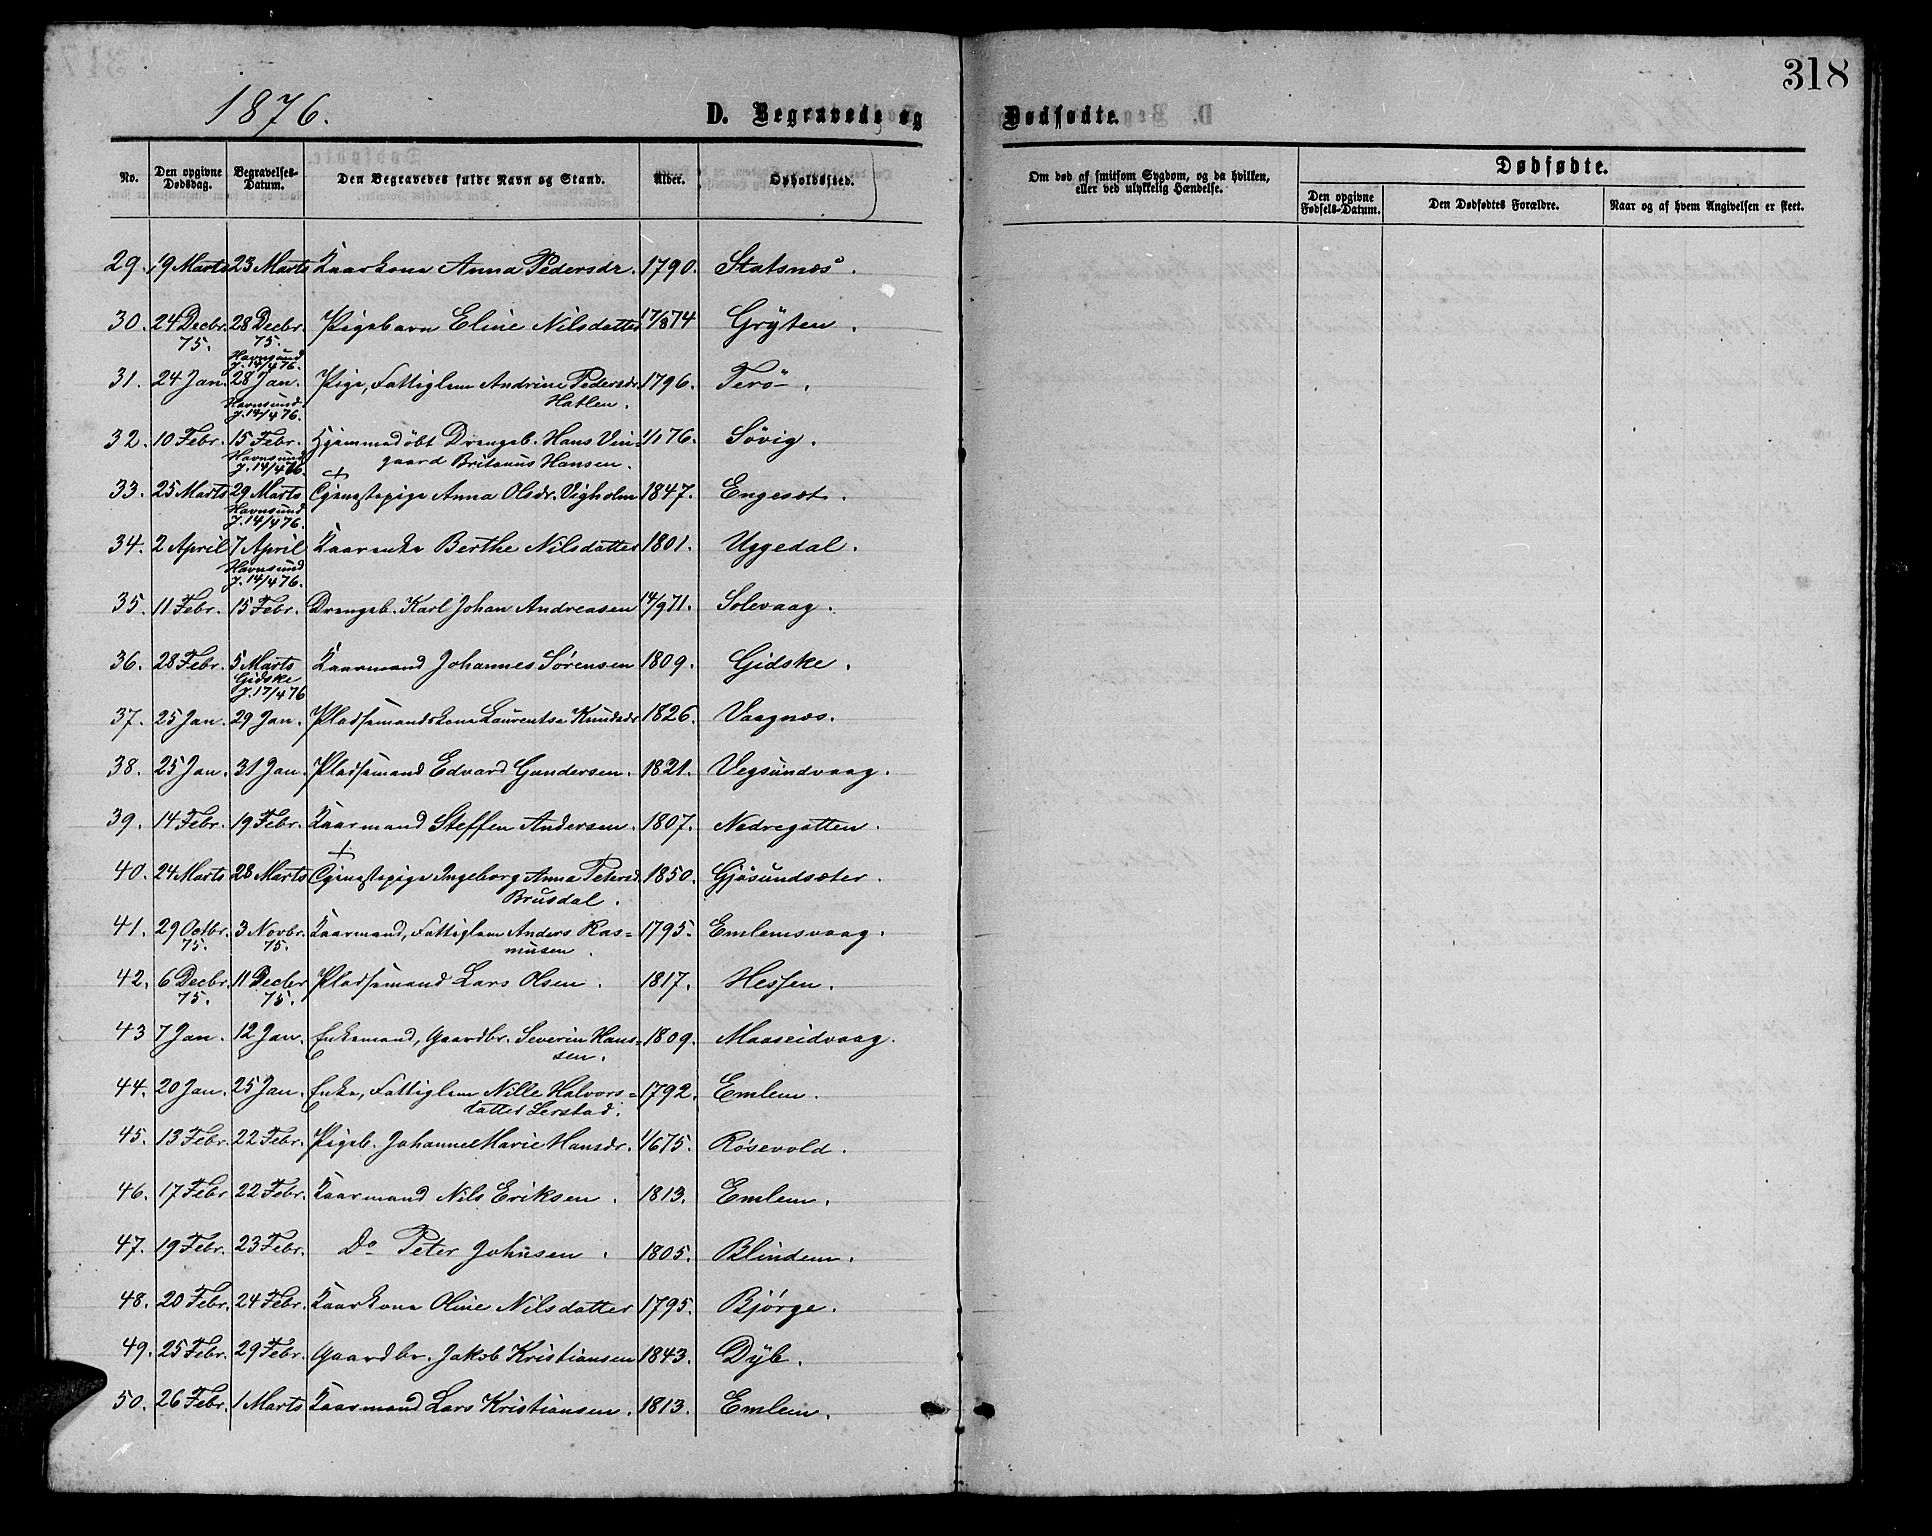 318
1876.
D. Begravede og Dødfødte.
No. Den opgivne Dødsdag. Begravelses-Datum. Den Begravedes fulde Navn og Stand. Alder. Opholdssted. Om død af smitsom Sygdom, og da hvilken, eller ved ulykkelig Hændelse. Dødfødte.
Den opgivne Fødsels-Datum. Den Dødfødtes Forældre. Naar og af hvem Angivelsen er skeet.
29. 19 Marts 23 Marts Kaarkone Anna Pedersdr. 1790. Statsnæs.
30. 24 Decbr. 28 Decbr. Pigebarn Eline Nilsdatter 17/8 74 Gryten.
75. 75.
Havnsund
J. 14/4 76.
31. 24 Jan. 28 Jan. Pige, Fattiglem Andrine Pedersdr. 1796. Terö.
Havnsund Hatlen.
J. 14/4 76.
32. 10 Febr. 15 Febr. Hjemmedøbt Drengeb. Hans Vin= 1/1 76. Søvig.
Havnsund gaard Britanus Hansen.
J. 14/4 76.
33. 25 Marts 29 Marts Tjenestepige Anna Olsdr. Vigholm 1847. Engeset.
Havnsund
J. 14/4 76.
34. 2 April 7 April Kaarenke Berthe Nilsdatter 1801. Uggedal.
Havnsund
J. 14/4 76.
35. 11 Febr. 15 Febr. Drengeb. Karl Johan Andreasen 14/9 71. Solevaag.
36. 28 Febr. 5 Marts Kaarmand Johannes Sørensen 1809. Gidske.
Gidske
J. 17/4 76
37. 25 Jan. 29 Jan. Pladsemandskone Laurentse Knudsdr 1826. Vaagnæs.
38. 25 Jan. 31 Jan. Pladsemand Edvard Gundersen. 1821. Vegsundvaag.
39. 14 Febr. 19 Febr. Kaarmand Steffen Andersen. 1807. Nedregotten.
40. 24 Marts 28 Marts Tjenestepige Ingeborg Anna Petersd. 1850. Gjøsundsæter.
Brusdal.
41. 29 Octbr. 3 Novbr. Kaarmand, Fattiglem Anders Ras= 1795. Emlemsvaag.
75. 75. musen.
42. 6 Decbr. 11 Decbr Pladsemand Lars Olsen. 1817. Hessen.
75. 75.
43 7 Jan. 12 Jan. Enkemand, Gaardbr. Severin Han= 1809. Maaseidvaag.
sen.
44. 20 Jan. 25 Jan. Enke, Fattiglem Nille Halvors= 1792. Emlem.
datter Lerstad.
45. 13 Febr. 22 Febr. Pigeb. Johanne Marie Hansdr. 1/6 75. Røsevold.
46. 17 Febr 22 Febr. Kaarmand Nils Eriksen. 1813. Emlem.
47. 19 Febr. 23 Febr. Do Peter Johnsen. 1805. Blindem.
48. 20 Febr. 24 Febr. Kaarkone Oline Nilsdatter 1795. Bjørge.
49. 25 Febr. 29 Febr. Gaardbr. Jakob Kristiansen 1843. Dyb.
50. 26 Febr. 1 Marts Kaarmand Lars Kristiansen. 1813. Emlem.